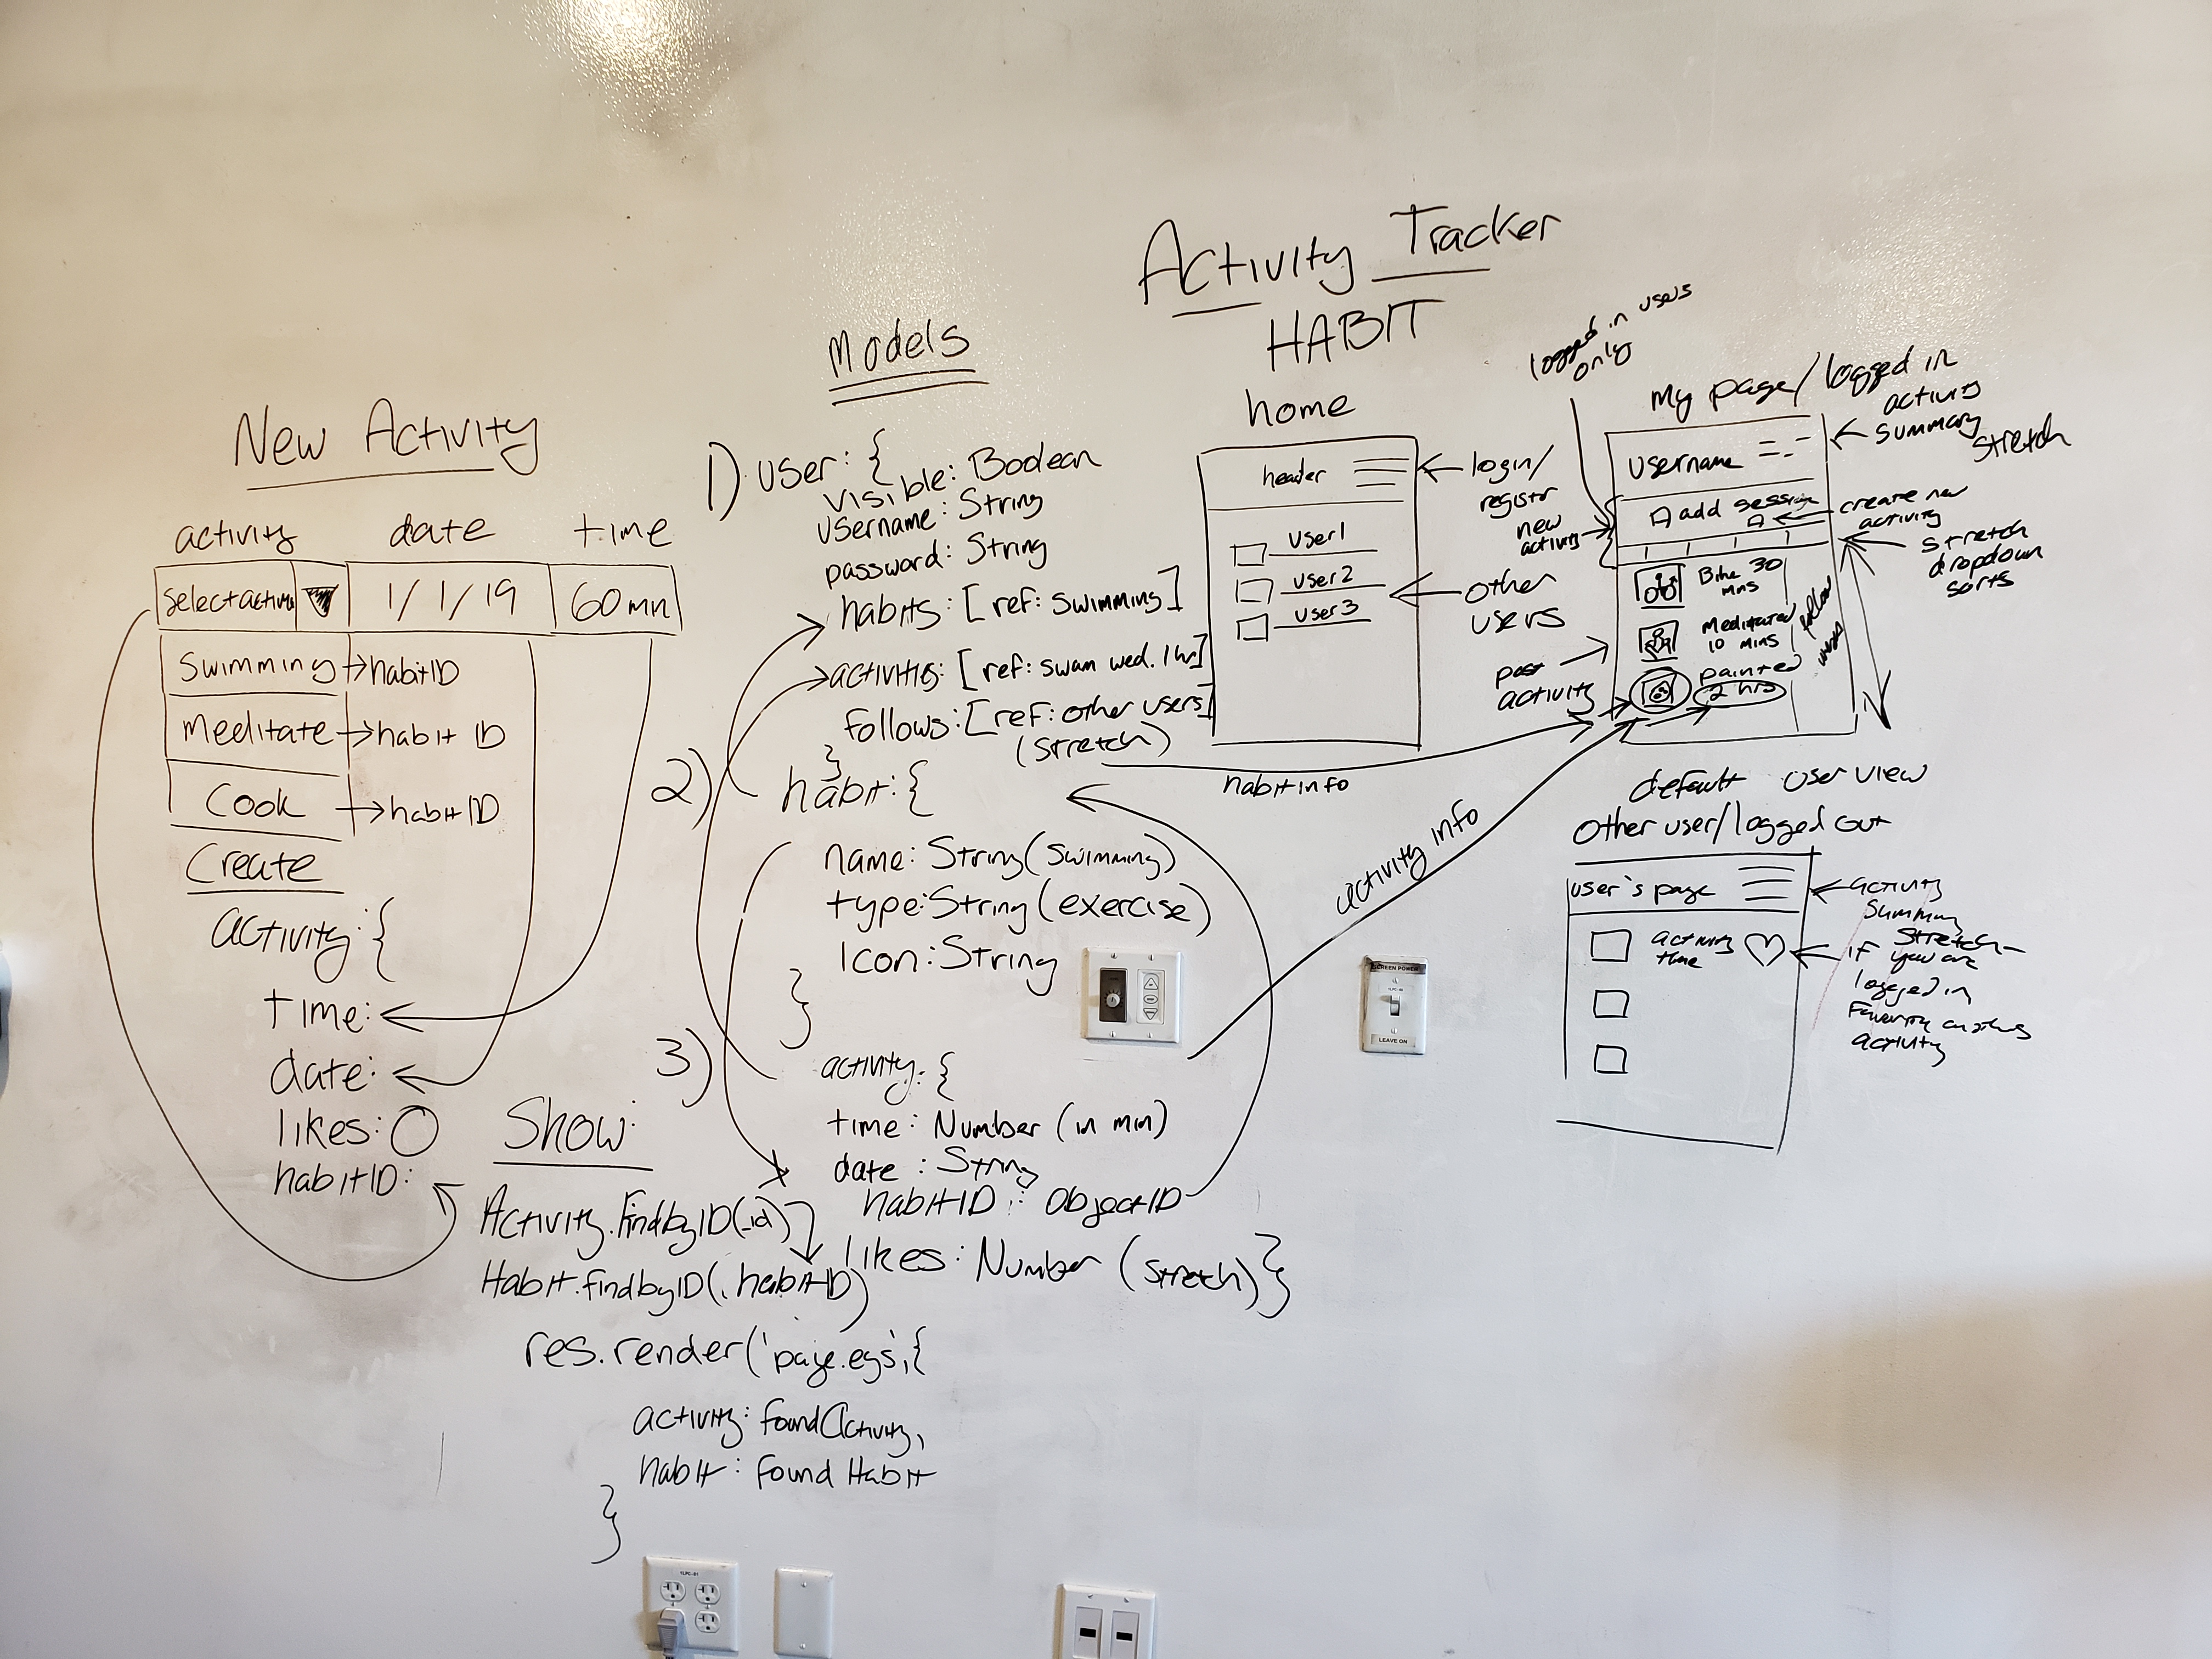 Activity Tracker
HABIT
New Activity
activity date time
select activity 1/1/19 60 mn
swimming → habitID
meditate → habit ID
Cook → habit ID
Create
activity: {
time:
date:
likes: 0
habitID:
Show:
Activity.FindbyID(_id)
Habit.findbyID(.habitID)
res.render('page.ejs',{
activity: foundActivity,
habit: found Habit
}
Models
1) user: {
visible: Boolean
username: String
password: String
habits: [ref: swimming]
activities: [ref: swam wed. 1 hr]
follows: [ref: other users]
(stretch)
}
2) habit: {
name: String (swimming)
type: String (exercise)
Icon: String
}
3) activity: {
time: Number (in min)
date: String
habitID: ObjectID
likes: Number (stretch) }
habit info
activity info
home
header
login/
register
user1
user2
user3
other
users
logged in users
only
my page/logged in
username
activity
summary
stretch
add session
new
activity
create new
activity
stretch
dropdown
sorts
Bike 30
mins
Meditated
10 mins
painted
2 hrs
follow
past
activity
default user view
other user/logged out
user's page
activity
summary
stretch
activity
time
if
you are
logged in
activity
SCREEN POWER
LEAVE ON